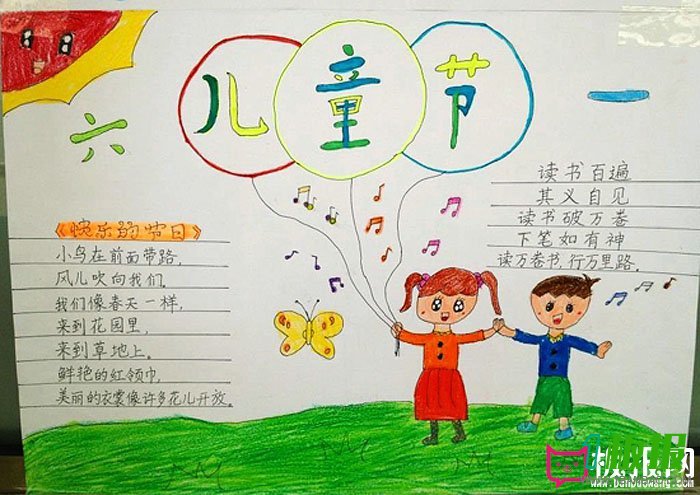 儿童节
六 一
《快乐的节日》
小鸟在前面带路,
风儿吹向我们,
我们像春天一样,
来到花园里,
来到草地上。
鲜艳的红领巾,
美丽的衣裳像许多花儿开放。
读书百遍
其义自见
读书破万卷
下笔如有神
读万卷书,行万里路。
www.banbaowang.com